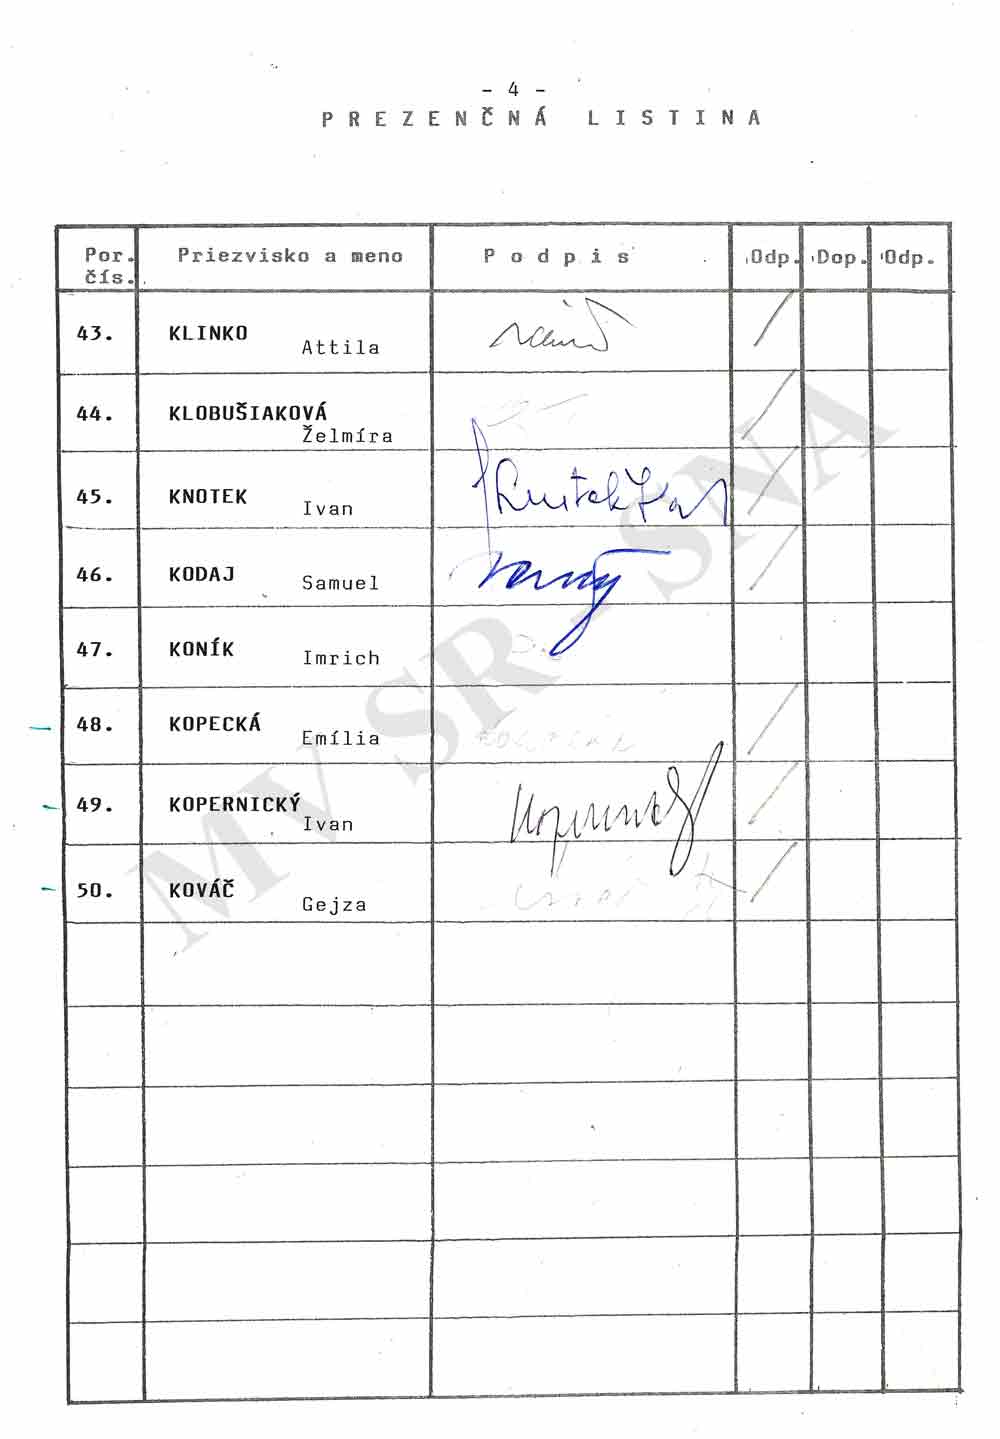 - 4 -
PREZENČNÁ LISTINA
Por. čís. Priezvisko a meno Podpis Odp. Dop. Odp.
43. KLINKO
Attila
44. KLOBUŠIAKOVÁ
Želmíra
45. KNOTEK
Ivan
46. KODAJ
Samuel
47. KONÍK
Imrich
48. KOPECKÁ
Emília
49. KOPERNICKÝ
Ivan
50. KOVÁČ
Gejza
MV SR - SNA